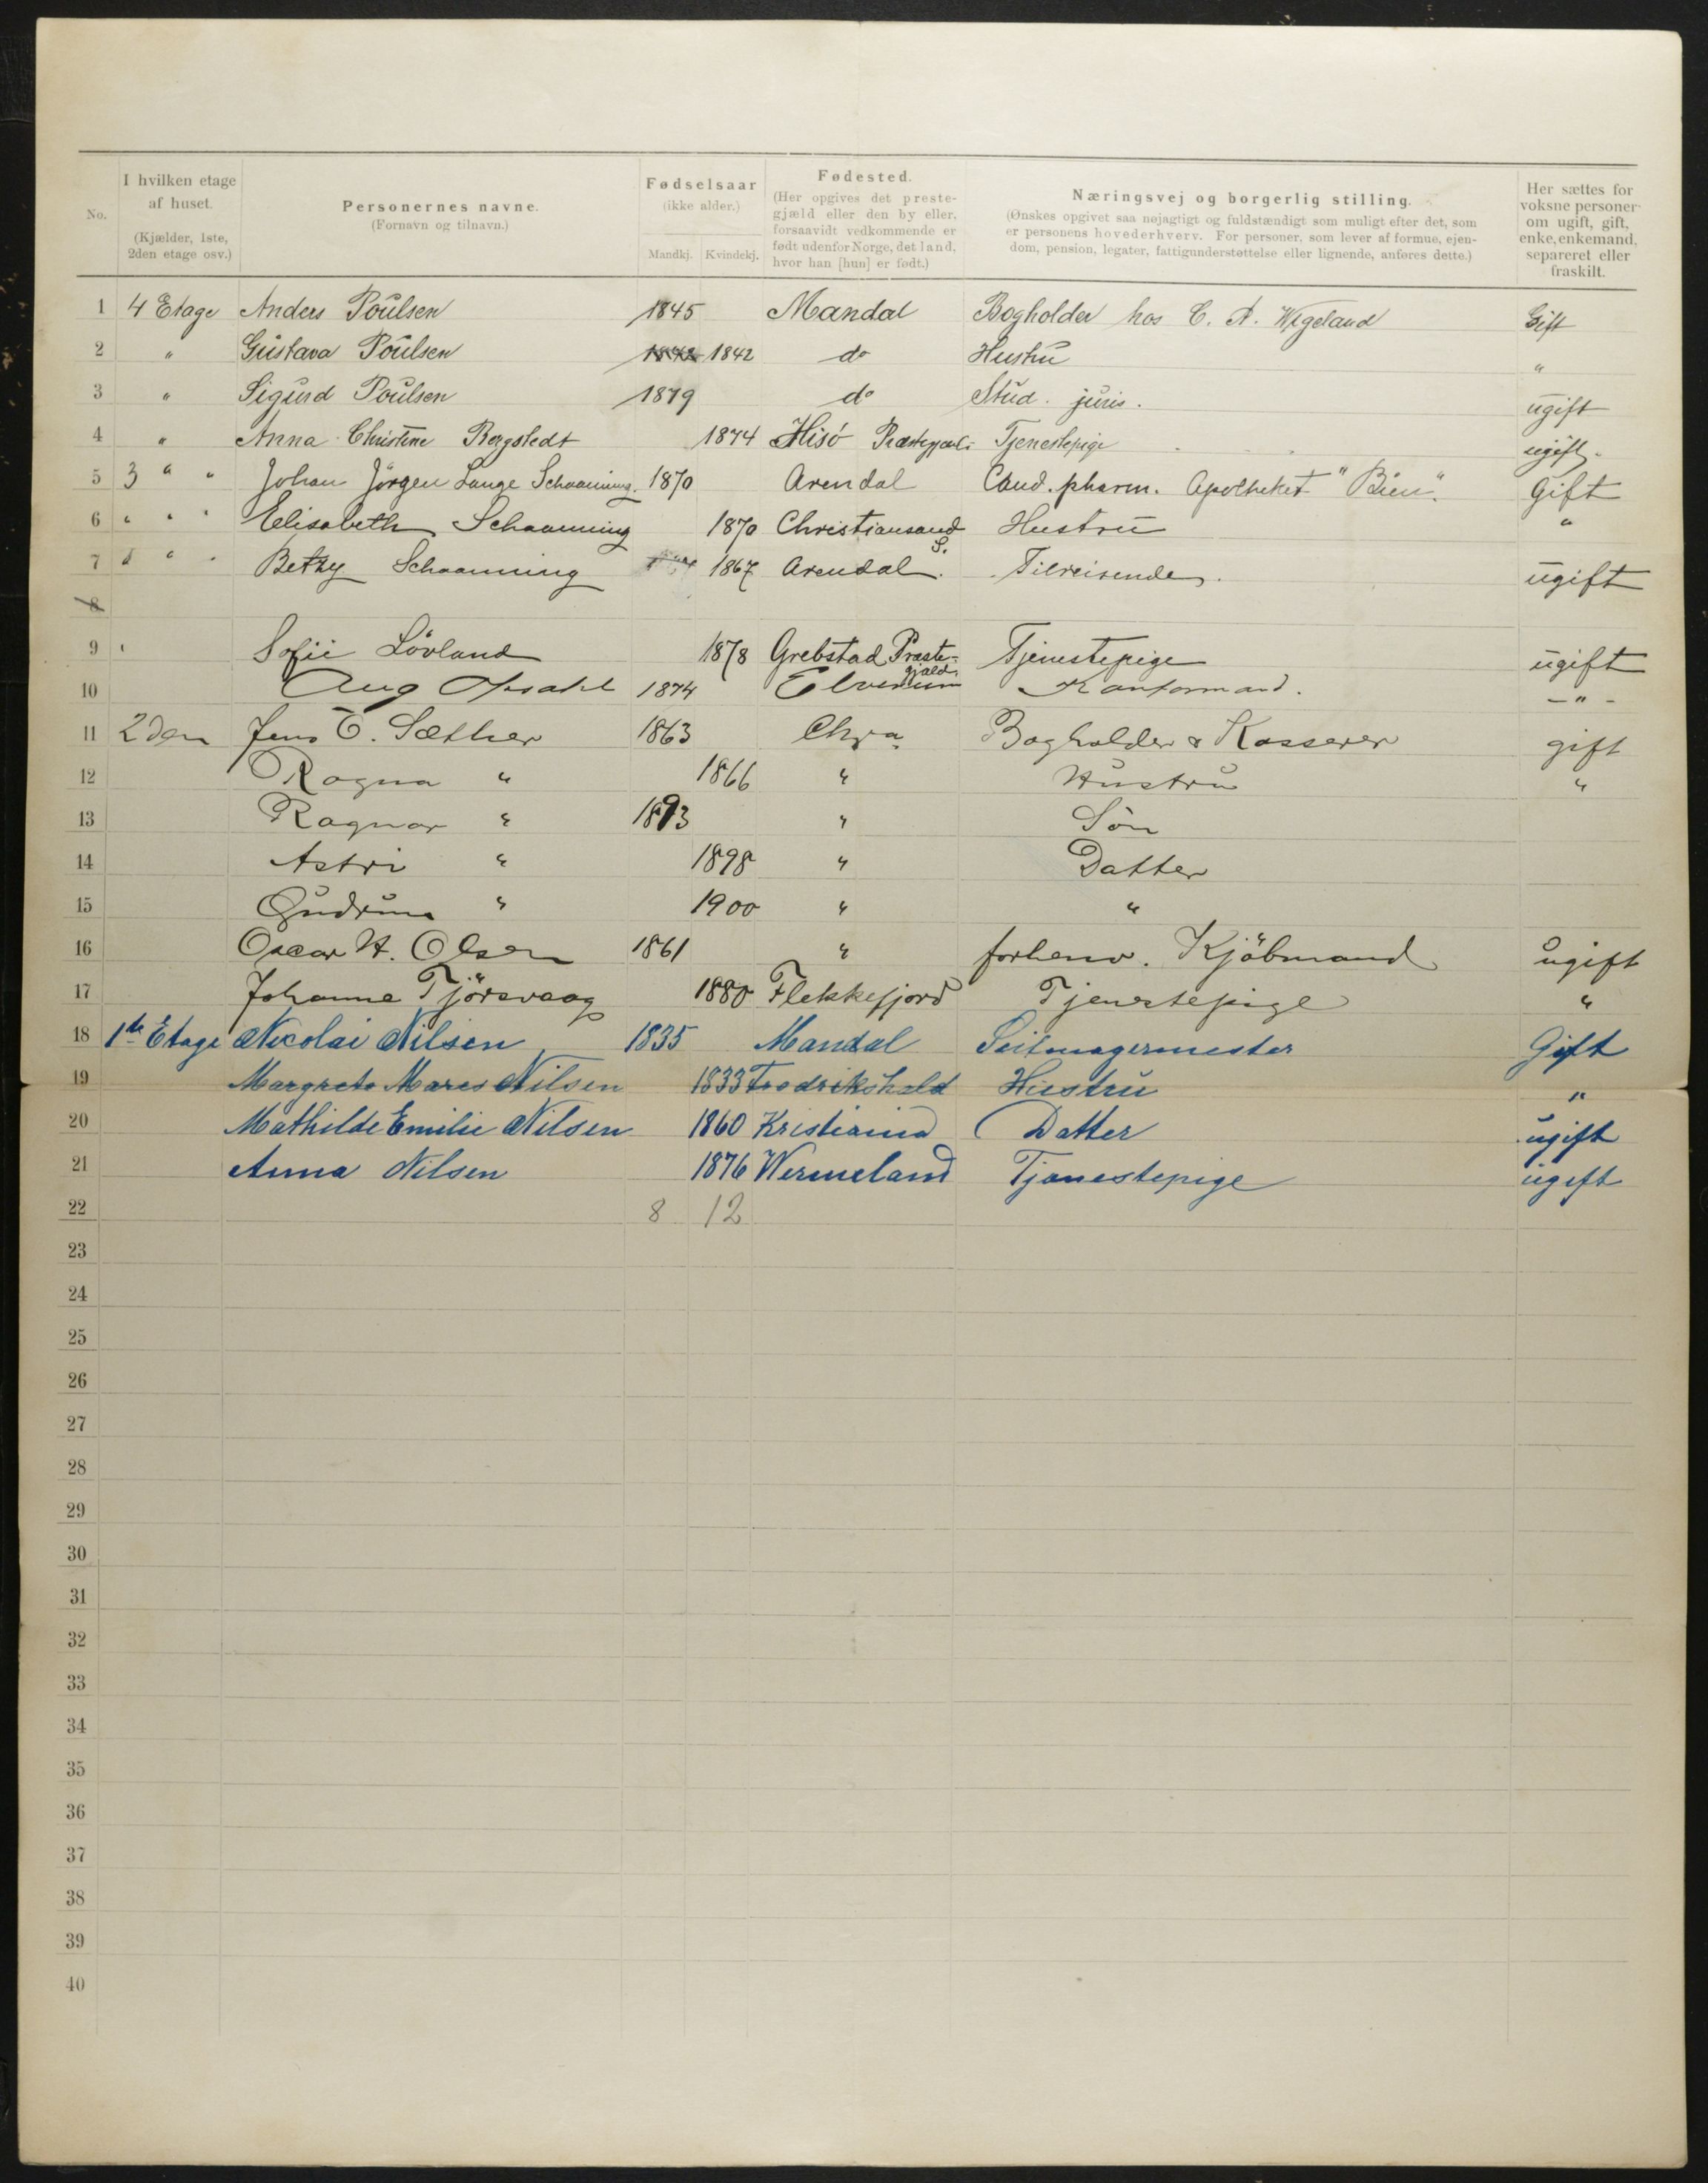 No.
I hvilken etage af huset. (Kjælder, 1ste, 2den etage osv.)
Personernes navne. (Fornavn og tilnavn.)
Fødselsaar (ikke alder.) Mandkj. Kvindekj.
Fødested. (Her opgives det prestegjæld eller den by eller, forsaavidt vedkommende er født udenfor Norge, det land, hvor han [hun] er født.)
Næringsvej og borgerlig stilling. (Ønskes opgivet saa nøjagtigt og fuldstændigt som muligt efter det, som er personens hovederhverv. For personer, som lever af formue, ejendom, pension, legater, fattigunderstøttelse eller lignende, anføres dette.)
Her sættes for voksne personer om ugift, gift, enke, enkemand, separeret eller fraskilt.
1 4 Etage Anders Poulsen 1845 Mandal Bogholder hos C. A. Wigeland Gift
2 " Gustava Poulsen 1842 1842 do Hustru "
3 " Sigurd Poulsen 1879 do Stud. juris. ugift
4 " Anna Christine Bergstedt 1874 Hisö Tjenestepige ugift.
5 3 " " Johan Jörgen Lange Schaanning. 1870 Arendal Cand. pharm. Apotheket "Bien". Gift
6 " " " Elisabeth Schaanning 1870 Christiansand S. Hustru "
7 " " " Betzy Schaanning 1867 Arendal. Tilreisende. ugift
8
9 " Sofie Lövland 1878 Grebstad Præstegjæld. Tjenestepige ugift
10 Aug Opsahl 1874 Elverum Kantormand. - " -
11 2den Jens E. Sæther 1863 Chra Bogholder & Kasserer gift
12 Ragna " 1866 " Hustru "
13 Ragnar " 1893 " Sön
14 Astri " 1898 " Datter
15 Gudrun " 1900 " "
16 Oscar H. Olsen 1861 " forhenv. Kjöbmand ugift
17 Johanne Tjörsvaag 1880 Flekkefjord Tjenestepige "
18 1ste Etage Nicolai Nilsen 1835 Mandal Seilmagermester Gift
19 Margrete Maren Nilsen 1833 Fredrikshald Hustru "
20 Mathilde Emilie Nilsen 1860 Kristiania Datter ugift
21 Anna Nilsen 1876 Wermeland Tjenestepige ugift
22 8 12
23
24
25
26
27
28
29
30
31
32
33
34
35
36
37
38
39
40